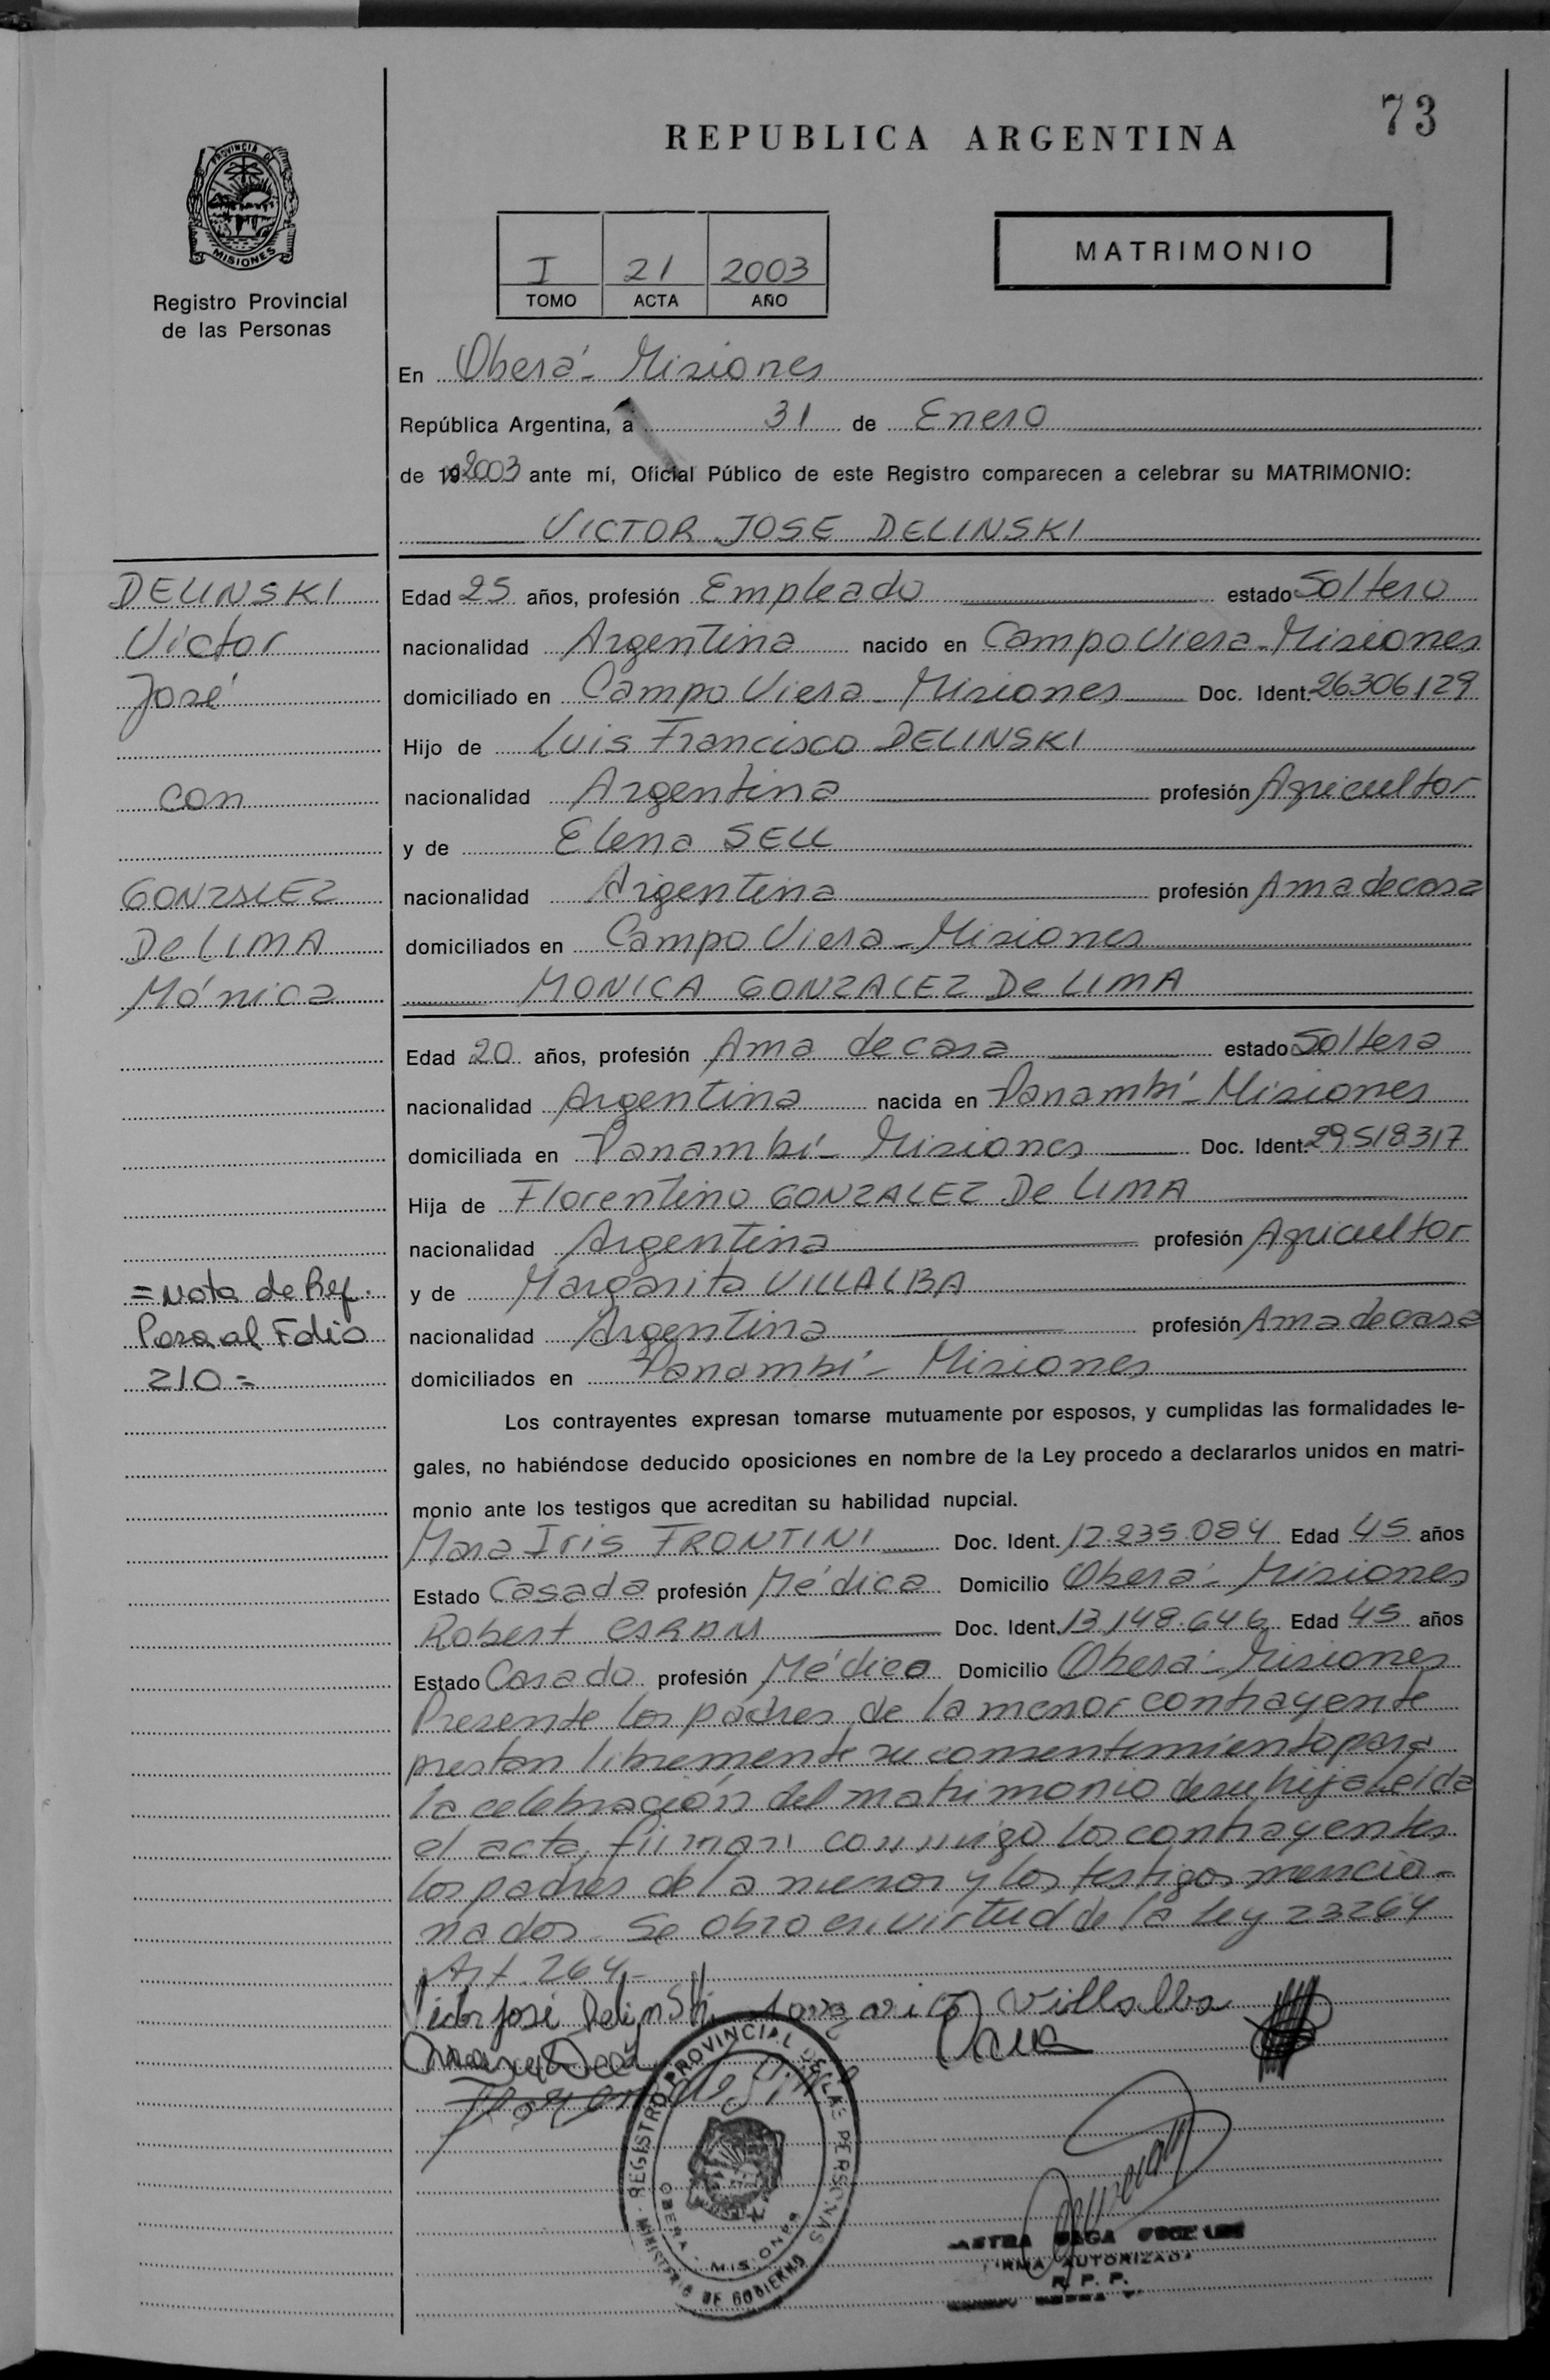 73
REPUBLICA ARGENTINA
PROVINCIA DE
MISIONES
Registro Provincial
de las Personas
I 21 2003
TOMO ACTA AÑO
MATRIMONIO
En Oberá - Misiones
República Argentina, a 31 de Enero
de 19 2003 ante mí, Oficial Público de este Registro comparecen a celebrar su MATRIMONIO:
VICTOR JOSE DELINSKI
DELINSKI
Victor
José
con
GONZALEZ
De LIMA
Mónica
= Nota de Ref.
Pasa al Folio
210 =
Edad 25 años, profesión Empleado estado Soltero
nacionalidad Argentina nacido en Campo Viera - Misiones
domiciliado en Campo Viera - Misiones Doc. Ident. 26306129
Hijo de Luis Francisco DELINSKI
nacionalidad Argentina profesión Agricultor
y de Elena SELL
nacionalidad Argentina profesión Ama de casa
domiciliados en Campo Viera - Misiones
MONICA GONZALEZ De LIMA
Edad 20 años, profesión Ama de casa estado Soltera
nacionalidad Argentina nacida en Panambí - Misiones
domiciliada en Panambí - Misiones Doc. Ident. 29.518.317
Hija de Florentino GONZALEZ De LIMA
nacionalidad Argentina profesión Agricultor
y de Margarita VILLALBA
nacionalidad Argentina profesión Ama de casa
domiciliados en Panambí - Misiones
Los contrayentes expresan tomarse mutuamente por esposos, y cumplidas las formalidades le-
gales, no habiéndose deducido oposiciones en nombre de la Ley procedo a declararlos unidos en matri-
monio ante los testigos que acreditan su habilidad nupcial.
Mara Iris FRONTINI Doc. Ident. 12.235.084 Edad 45 años
Estado Casada profesión Médica Domicilio Oberá - Misiones
Robert Doc. Ident. 13.148.646 Edad 45 años
Estado Casado profesión Médico Domicilio Oberá - Misiones
Presente los padres de la menor contrayente
prestan libremente su consentimiento para
la celebración del matrimonio de su hija Leida
el acta, firman conmigo los contrayentes
los padres de la menor y los testigos mencio-
nados. Se obro en virtud de la ley 23264
Art. 264.-
Victor José Delinski Margarita Villalba
REGISTRO PROVINCIAL DE LAS PERSONAS
MINISTERIO DE GOBIERNO
OBERA - MISIONES
FIRMA AUTORIZADA
R. P. P.